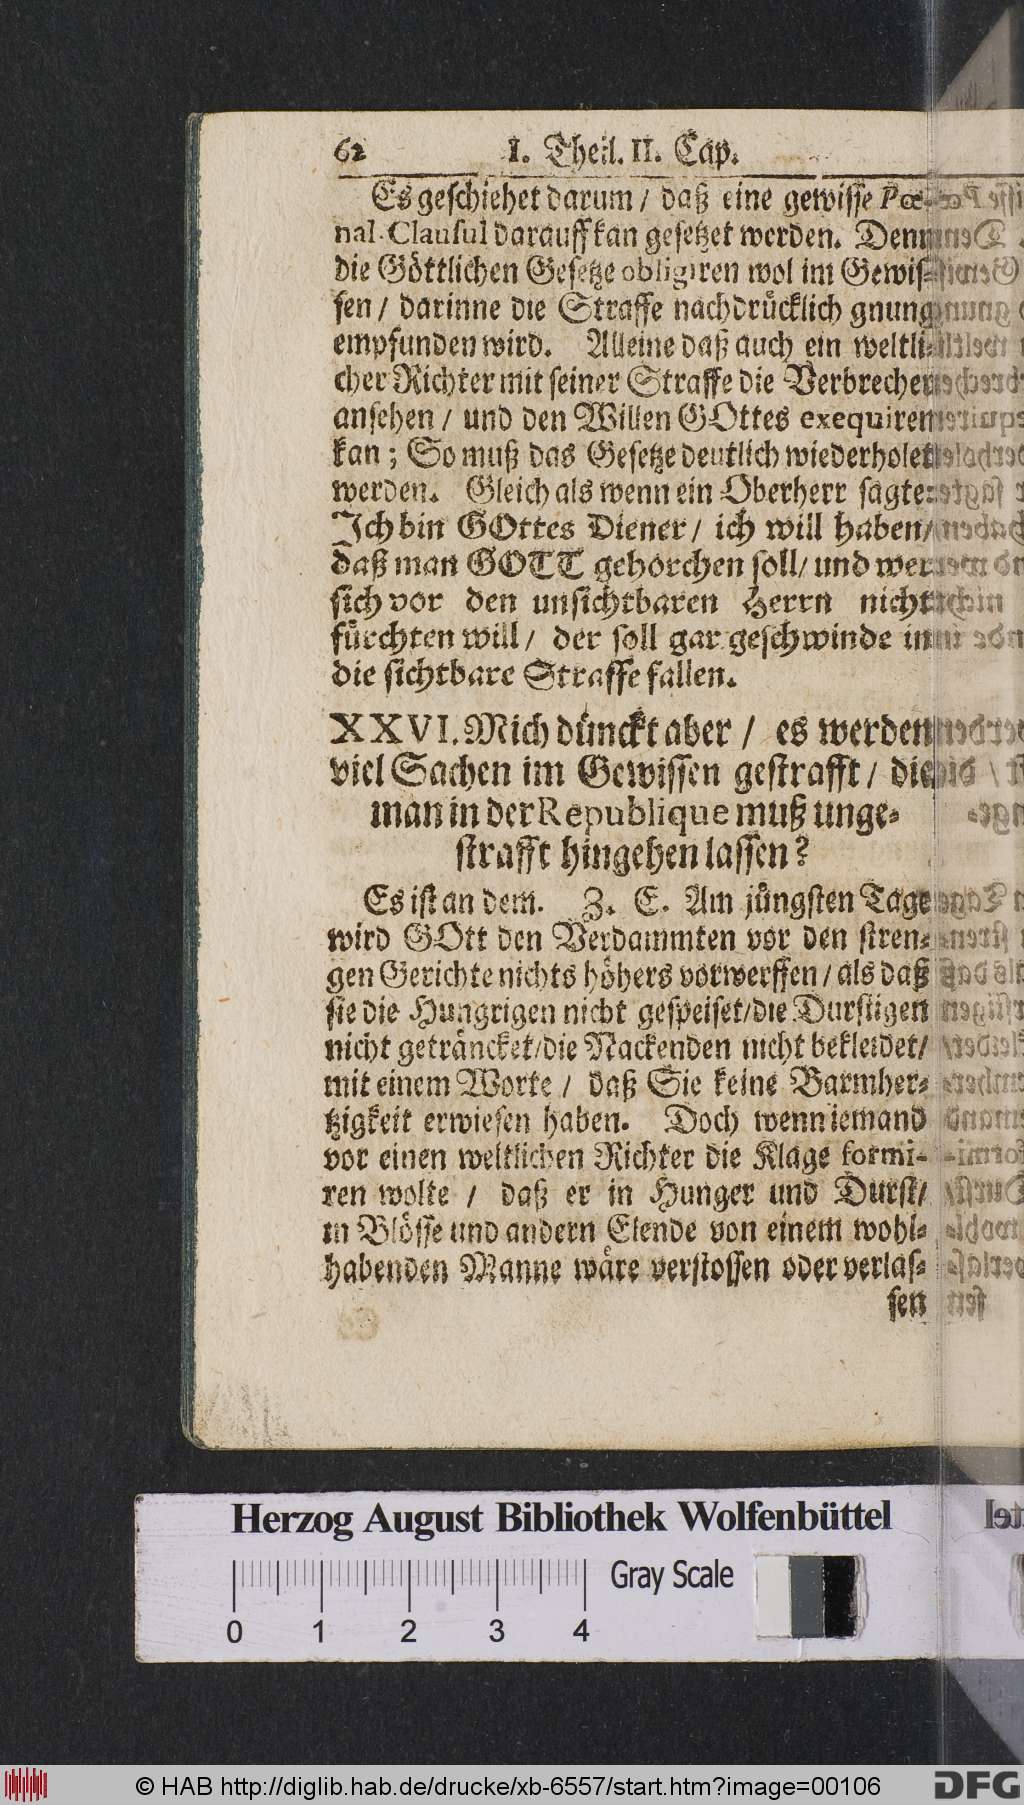 62 I. Theil. II. Cap.
Es geschiehet darum / daß eine gewisse Pœ-
nal-Clausul darauff kan gesetzet werden. Denn
die Göttlichen Gesetze obligiren wol im Gewis-
sen / darinne die Straffe nachdrücklich gnung
empfunden wird. Alleine daß auch ein weltli-
cher Richter mit seiner Straffe die Verbrecher
ansehen / und den Willen GOttes exequiren
kan ; So muß das Gesetze deutlich wiederholet
werden. Gleich als wenn ein Oberherr sagte:
Ich bin GOttes Diener / ich will haben /
daß man GOTT gehorchen soll / und wer
sich vor den unsichtbaren Herrn nicht
fürchten will / der soll gar geschwinde in
die sichtbare Straffe fallen.
XXVI. Mich dünckt aber / es werden
viel Sachen im Gewissen gestrafft / die
man in der Republique muß unge-
strafft hingehen lassen?
Es ist an dem. Z. E. Am jüngsten Tage
wird GOtt den Verdammten vor den stren-
gen Gerichte nichts höhers vorwerffen / als daß
sie die Hungrigen nicht gespeiset / die Durstigen
nicht geträncket / die Nackenden nicht bekleidet /
mit einem Worte / daß Sie keine Barmher-
tzigkeit erwiesen haben. Doch wenn iemand
vor einen weltlichen Richter die Klage formi-
ren wolte / daß er in Hunger und Durst /
in Blösse und andern Elende von einem wohl-
habenden Manne wäre verstossen oder verlas-
sen
Herzog August Bibliothek Wolfenbüttel
Gray Scale
0 1 2 3 4
© HAB http://diglib.hab.de/drucke/xb-6557/start.htm?image=00106
DFG